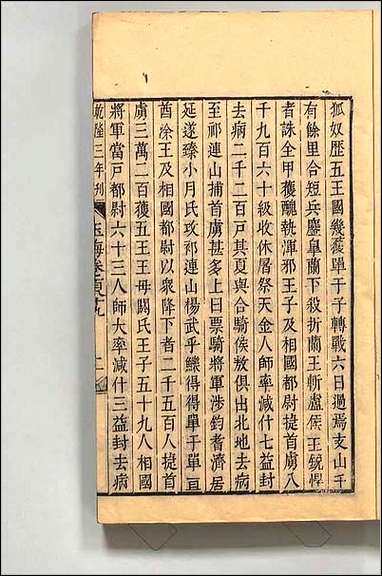 狐奴歷五王國幾獲單于子轉戰六日過焉支山千
有餘里合短兵鏖臯蘭下殺折蘭王斬盧侯王銳悍
者誅全甲獲醜執渾邪王子及相國都尉首虜八
千九百六十級收休屠祭天金人師率減什七益封
去病二千二百戶其夏與合騎侯敖俱出北地去病
至祁連山捕首虜甚多上曰票騎將軍涉鈞耆濟居
延遂臻小月氏攻祁連山楊武乎鱳得得單于單亘
酋涂王及相國都尉以衆降下者二千五百人捷首
虜三萬二百獲五王王母閼氏王子五十九人相國
將軍當戶都尉六十三人師大率減什三益封去病
乾隆三年刊
玉海卷百
二